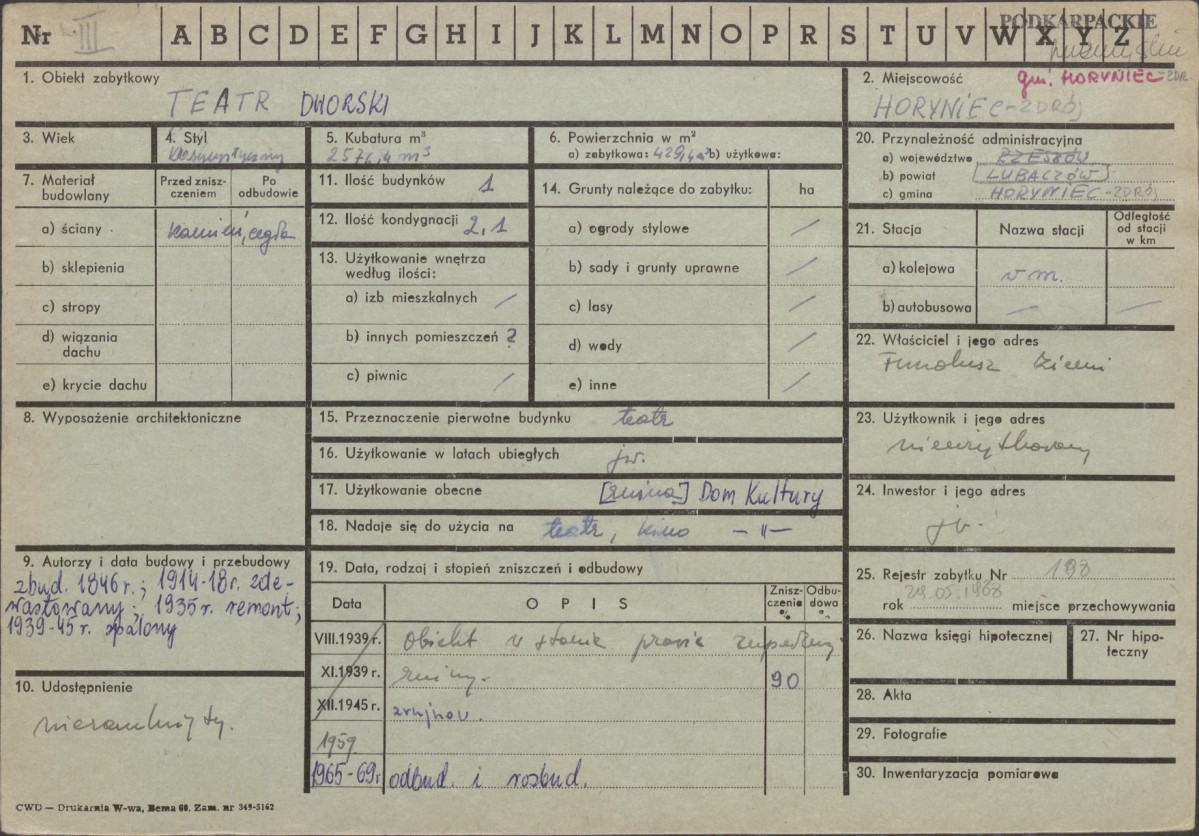 Nr III A B C D E F G H I J K L M N O P R S T U V W X Y Z
PODKARPACKIE
1. Obiekt zabytkowy
TEATR DWORSKI
2. Miejscowość gm. HORYNIEC-ZDR.
HORYNIEC-ZDRÓJ
3. Wiek
4. Styl
klasycystyczny
5. Kubatura m³
2576,4 m³
6. Powierzchnia w m²
a) zabytkowa: 429,4 m² b) użytkowa:
7. Materiał budowlany
Przed znisz-
czeniem
Po
odbudowie
a) ściany kamień, cegła
b) sklepienia
c) stropy
d) wiązania
dachu
e) krycie dachu
11. Ilość budynków 1
12. Ilość kondygnacji 2,1
13. Użytkowanie wnętrza
według ilości:
a) izb mieszkalnych /
b) innych pomieszczeń 2
c) piwnic /
14. Grunty należące do zabytku: ha
a) ogrody stylowe /
b) sady i grunty uprawne /
c) lasy /
d) wody /
e) inne /
20. Przynależność administracyjna
a) województwo RZESZÓW
b) powiat [LUBACZÓW]
c) gmina HORYNIEC-ZDRÓJ
21. Stacja
Nazwa stacji
Odległość
od stacji
w km
a) kolejowa v m.
b) autobusowa — —
22. Właściciel i jego adres
Fundusz Ziemi
8. Wyposażenie architektoniczne
15. Przeznaczenie pierwotne budynku teatr
16. Użytkowanie w latach ubiegłych jw.
17. Użytkowanie obecne [ruina] Dom Kultury
18. Nadaje się do użycia na teatr, kino —"—
23. Użytkownik i jego adres
nieużytkowany
24. Inwestor i jego adres
jw.
9. Autorzy i data budowy i przebudowy
zbud. 1846 r.; 1914-18 r. zde-
wastowany; 1935 r. remont;
1939-45 r. spalony
10. Udostępnienie
19. Data, rodzaj i stopień zniszczeń i odbudowy
Data
OPIS
Znisz-
czenie
%
Odbu-
dowa
%
VIII.1939 r. Obiekt w stanie prawie zupełnej
XI.1939 r. ruiny. 90
XII.1945 r. zrujnow.
1959
1965-69 r. odbud. i rozbud.
25. Rejestr zabytku Nr 198
rok 29.05.1968 miejsce przechowywania
26. Nazwa księgi hipotecznej
27. Nr hipo-
teczny
28. Akta
29. Fotografie
30. Inwentaryzacja pomiarowa
CWD — Drukarnia W-wa, Bema 60. Zam. nr 349-5162